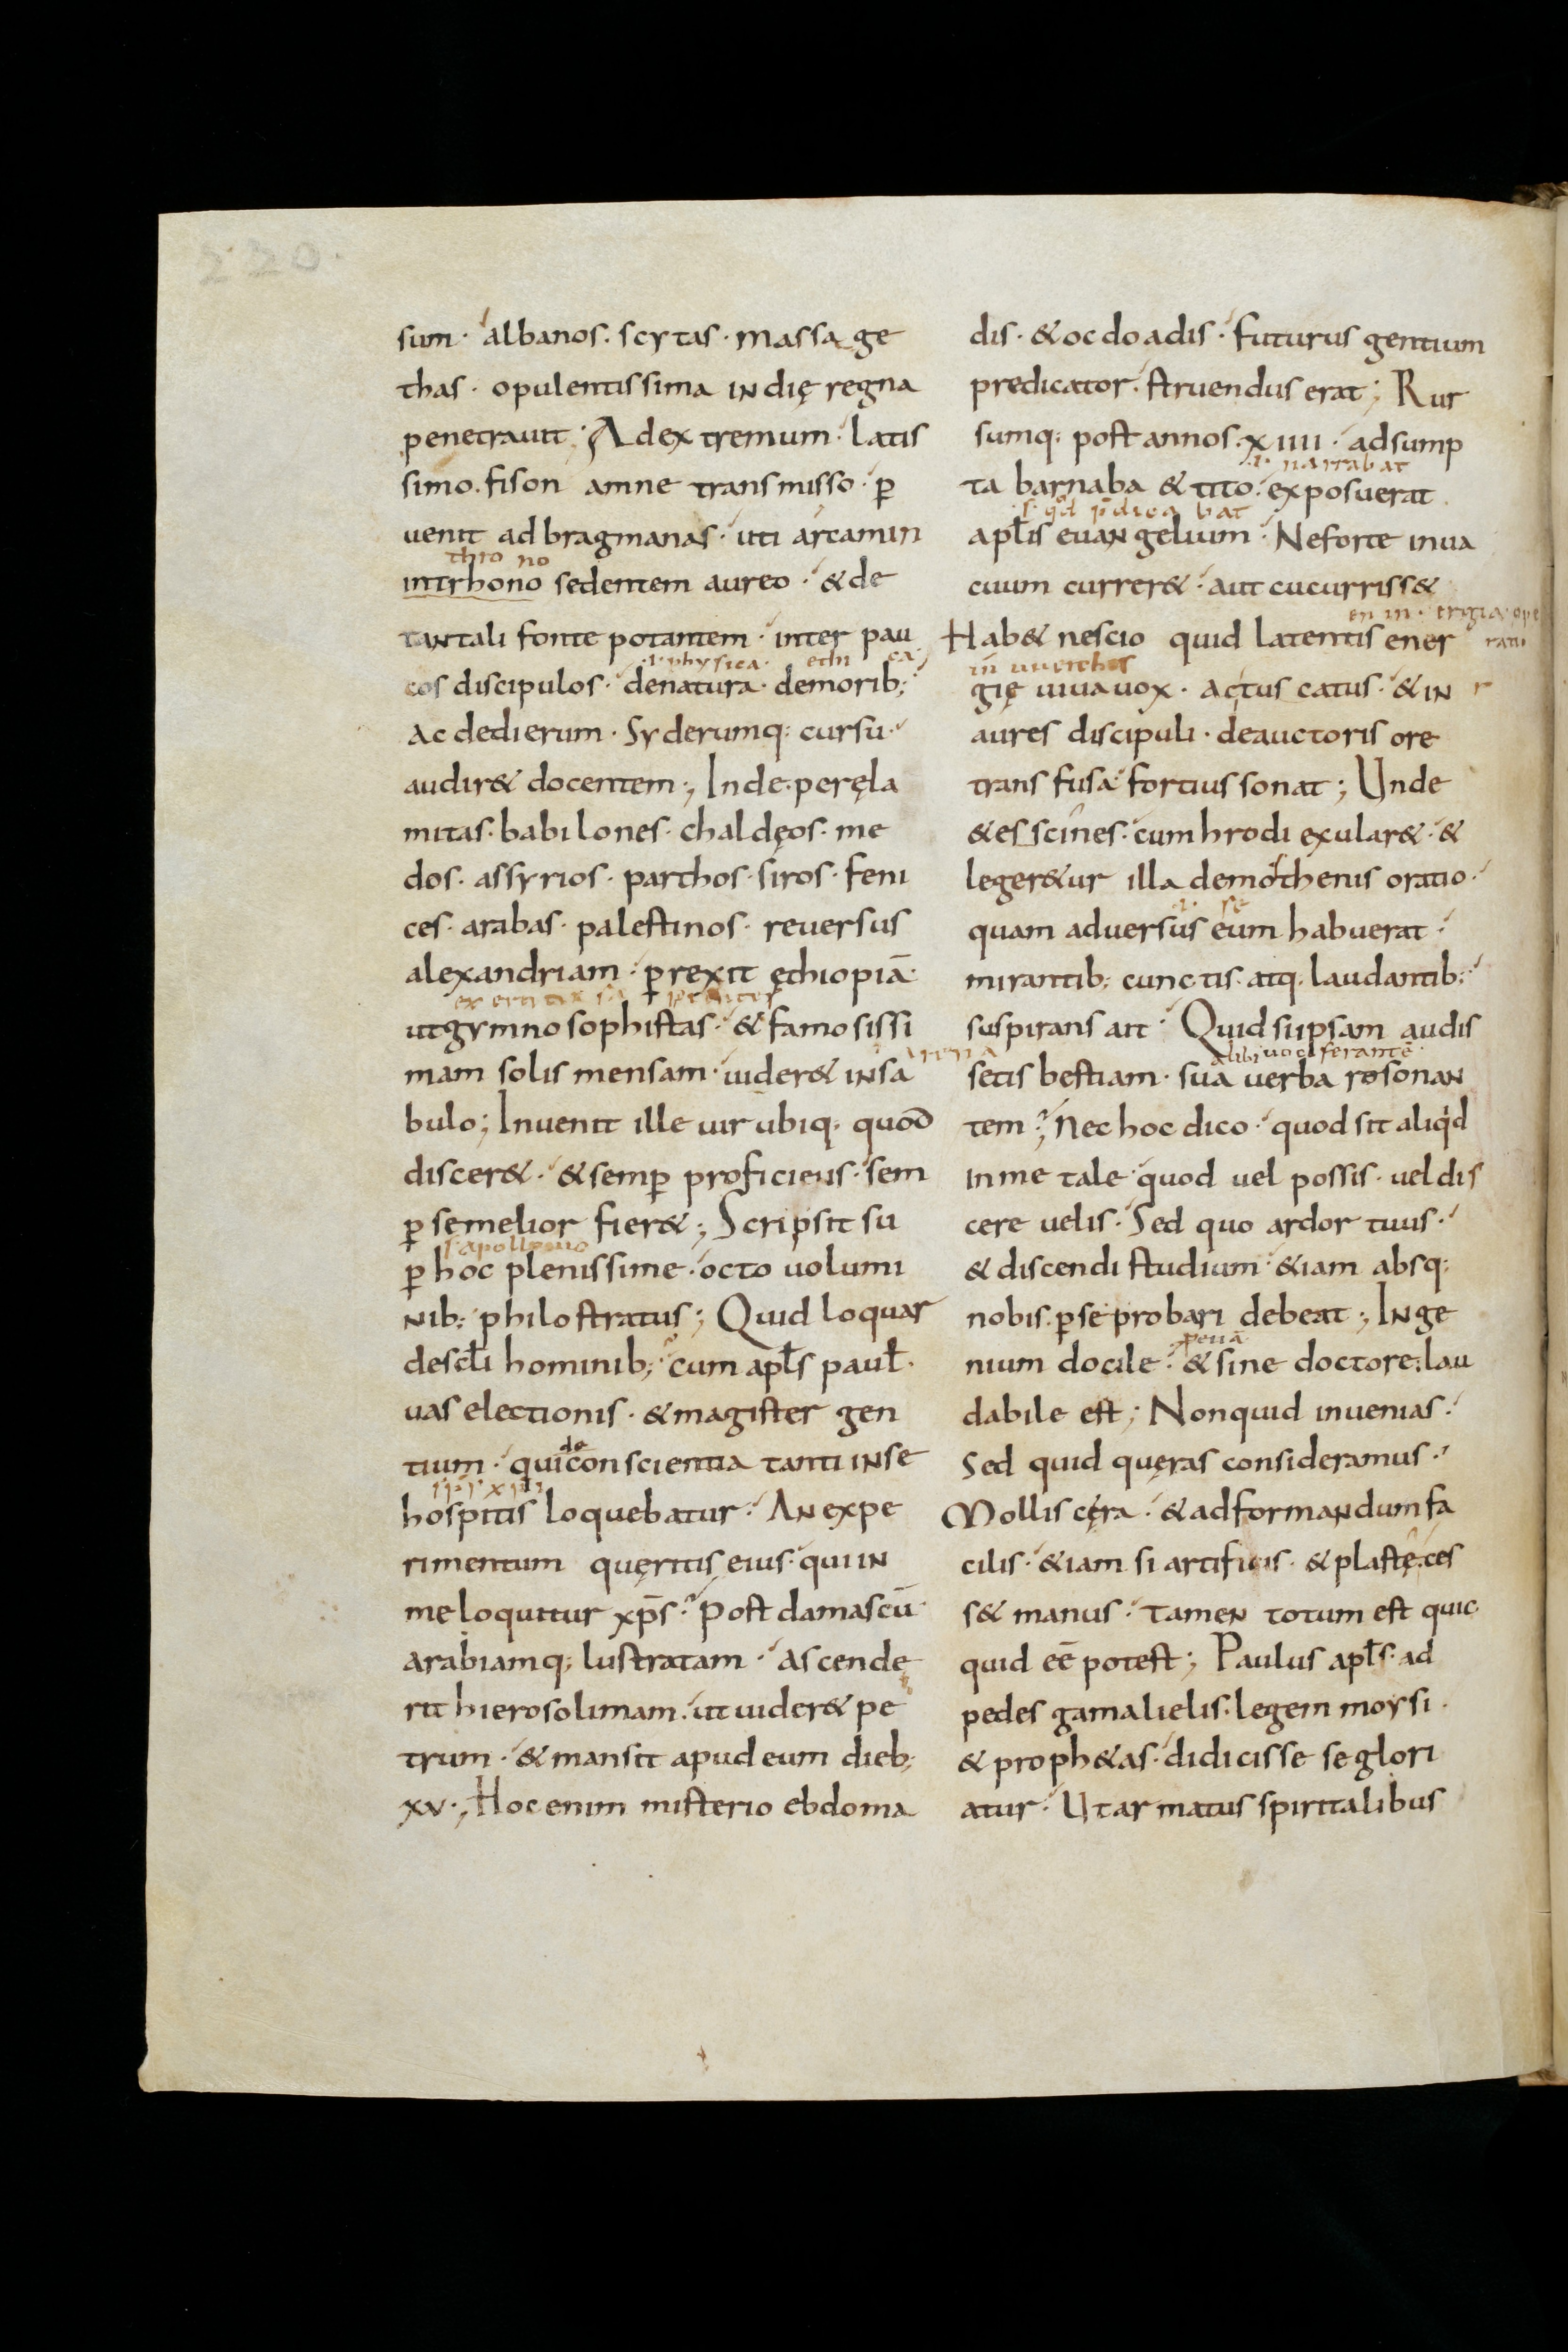 220.
sum· albanos· scytas· massage
thas· opulentissima indię regna
penetrauit· Adextremum· latis
simo· fison amne transmisso· ꝑ
uenit adbragmanas· uti arcamin
thro no
intrhono sedentem aureo· &de
tantali fonte potantem· inter pau
·i· physica· ethi ca
cos discipulos· denatura· demorib;
Ac dedierum· Syderumq; cursu·
audir& docentem; Inde· peręla
mitas· babilones· chaldęos· me
dos· assyrios· parthos· siros· feni
ces· arabas· palestinos· reuersus
alexandriam· ꝑrexit ęthiopiā·
utgymnosophistas· &famosissi
·i· arena
mam solis mensam· uider& insa
bulo; Inuenit ille uir ubiq; quod
discer&· &semꝑ proficiens· sem
ꝑ semelior fier&; Scripsit su
s· apollonio
ꝑ hoc plenissime· octo uolumi
nib; philostratus; Quid loquar
descl̄i hominib; cum apl̄s paul̄·
uas electionis· &magister gen
de
tium· qui conscientia tanti inse
hospitis loquebatur· An expe
rimentum quęritis eius· qui in
me loquitur xp̄s· Post damascū
arabiamq; lustratam· ascende
rit hierosolimam· ut uider& pe
trum· &mansit apud eum dieb;
xv·; Hoc enim misterio ebdoma
dis· &ocdoadis· futurus gentium
predicator· struendus erat; Rur
sumq; post annos· xiiii· adsump
·i· narrabat
ta barnaba &tito· exposuerat
s· qd p̄dica bat
apl̄is euangelium· Neforte inua
cuum currer&· aut cucurriss&
en in· ergia· ope
Hab& nescio quid latentis ener
rati
gię uiuauox· actus catus· &in r
aures discipuli· deauctoris ore
transfusa fortius sonat; Unde
&esscines· cum hrodi exular&· &
leger&ur illa demosthenis oratio·
·i· se
quam aduersus eum habuerat·
mirantib; cunctis· atq; laudantib;
suspirans ait· Quid siipsam audis
sibi uociferantē
setis bestiam· sua uerba resonan
tem? Nec hoc dico· quod sit aliqd
in me tale· quod uel possis· uel dis
cere uelis· Sed quo ardor tuus·
&discendi studium· &iam absq;
nobis· ꝑse probari debeat; Inge
nium docile· &sine doctore· lau
dabile est; Nonquid inuenias·
Sed quid quęras consideramus·
Mollis cęra· &adformandum fa
cilis· &iam si artificis· &plastę ces
s& manus· Tamen totum est quic
quid eē potest; Paulus apl̄s· ad
pedes gamalielis· legem moysi·
&proph&as· didicisse se glori
atur· Utar matus spiritalibus